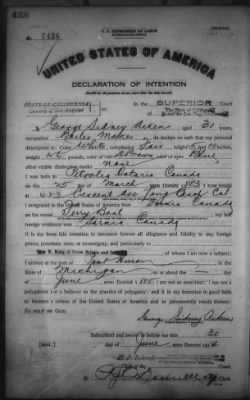 438
No. 7426
U. S. DEPARTMENT OF LABOR
UNITED STATES OF AMERICA
DECLARATION OF INTENTION
STATE OF CALIFORNIA
County of Los Angeles
In the SUPERIOR Court
I, George Sidney Aiken, aged 31 years,
occupation, do declare on oath that my personal
description is: Color White, complexion Fair, height 5 feet 10 inches,
weight pounds, color of hair Brown, color of eyes Blue
other visible distinctive marks None
I was born in Petrolea Ontario Canada
on the 25 day of March, anno Domini 1883; I now reside
at Long Beach Cal.
I emigrated to the United States of America from Sarnia Canada
on the vessel Ferry Boat; my last
foreign residence was Sarnia Canada
It is my bona fide intention to renounce forever all allegiance and fidelity to any foreign
prince, potentate, state, or sovereignty, and particularly to
of whom I am now a subject;
I arrived at the port of Port Huron, in the
State of Michigan on or about the day
of June, anno Domini 1885; I am not an anarchist; I am not a
polygamist nor a believer in the practice of polygamy; and it is my intention in good faith
to become a citizen of the United States of America and to permanently reside therein:
SO HELP ME GOD.
George Sidney Aiken
Subscribed and sworn to before me this 30
[SEAL.] day of June, anno Domini 1914